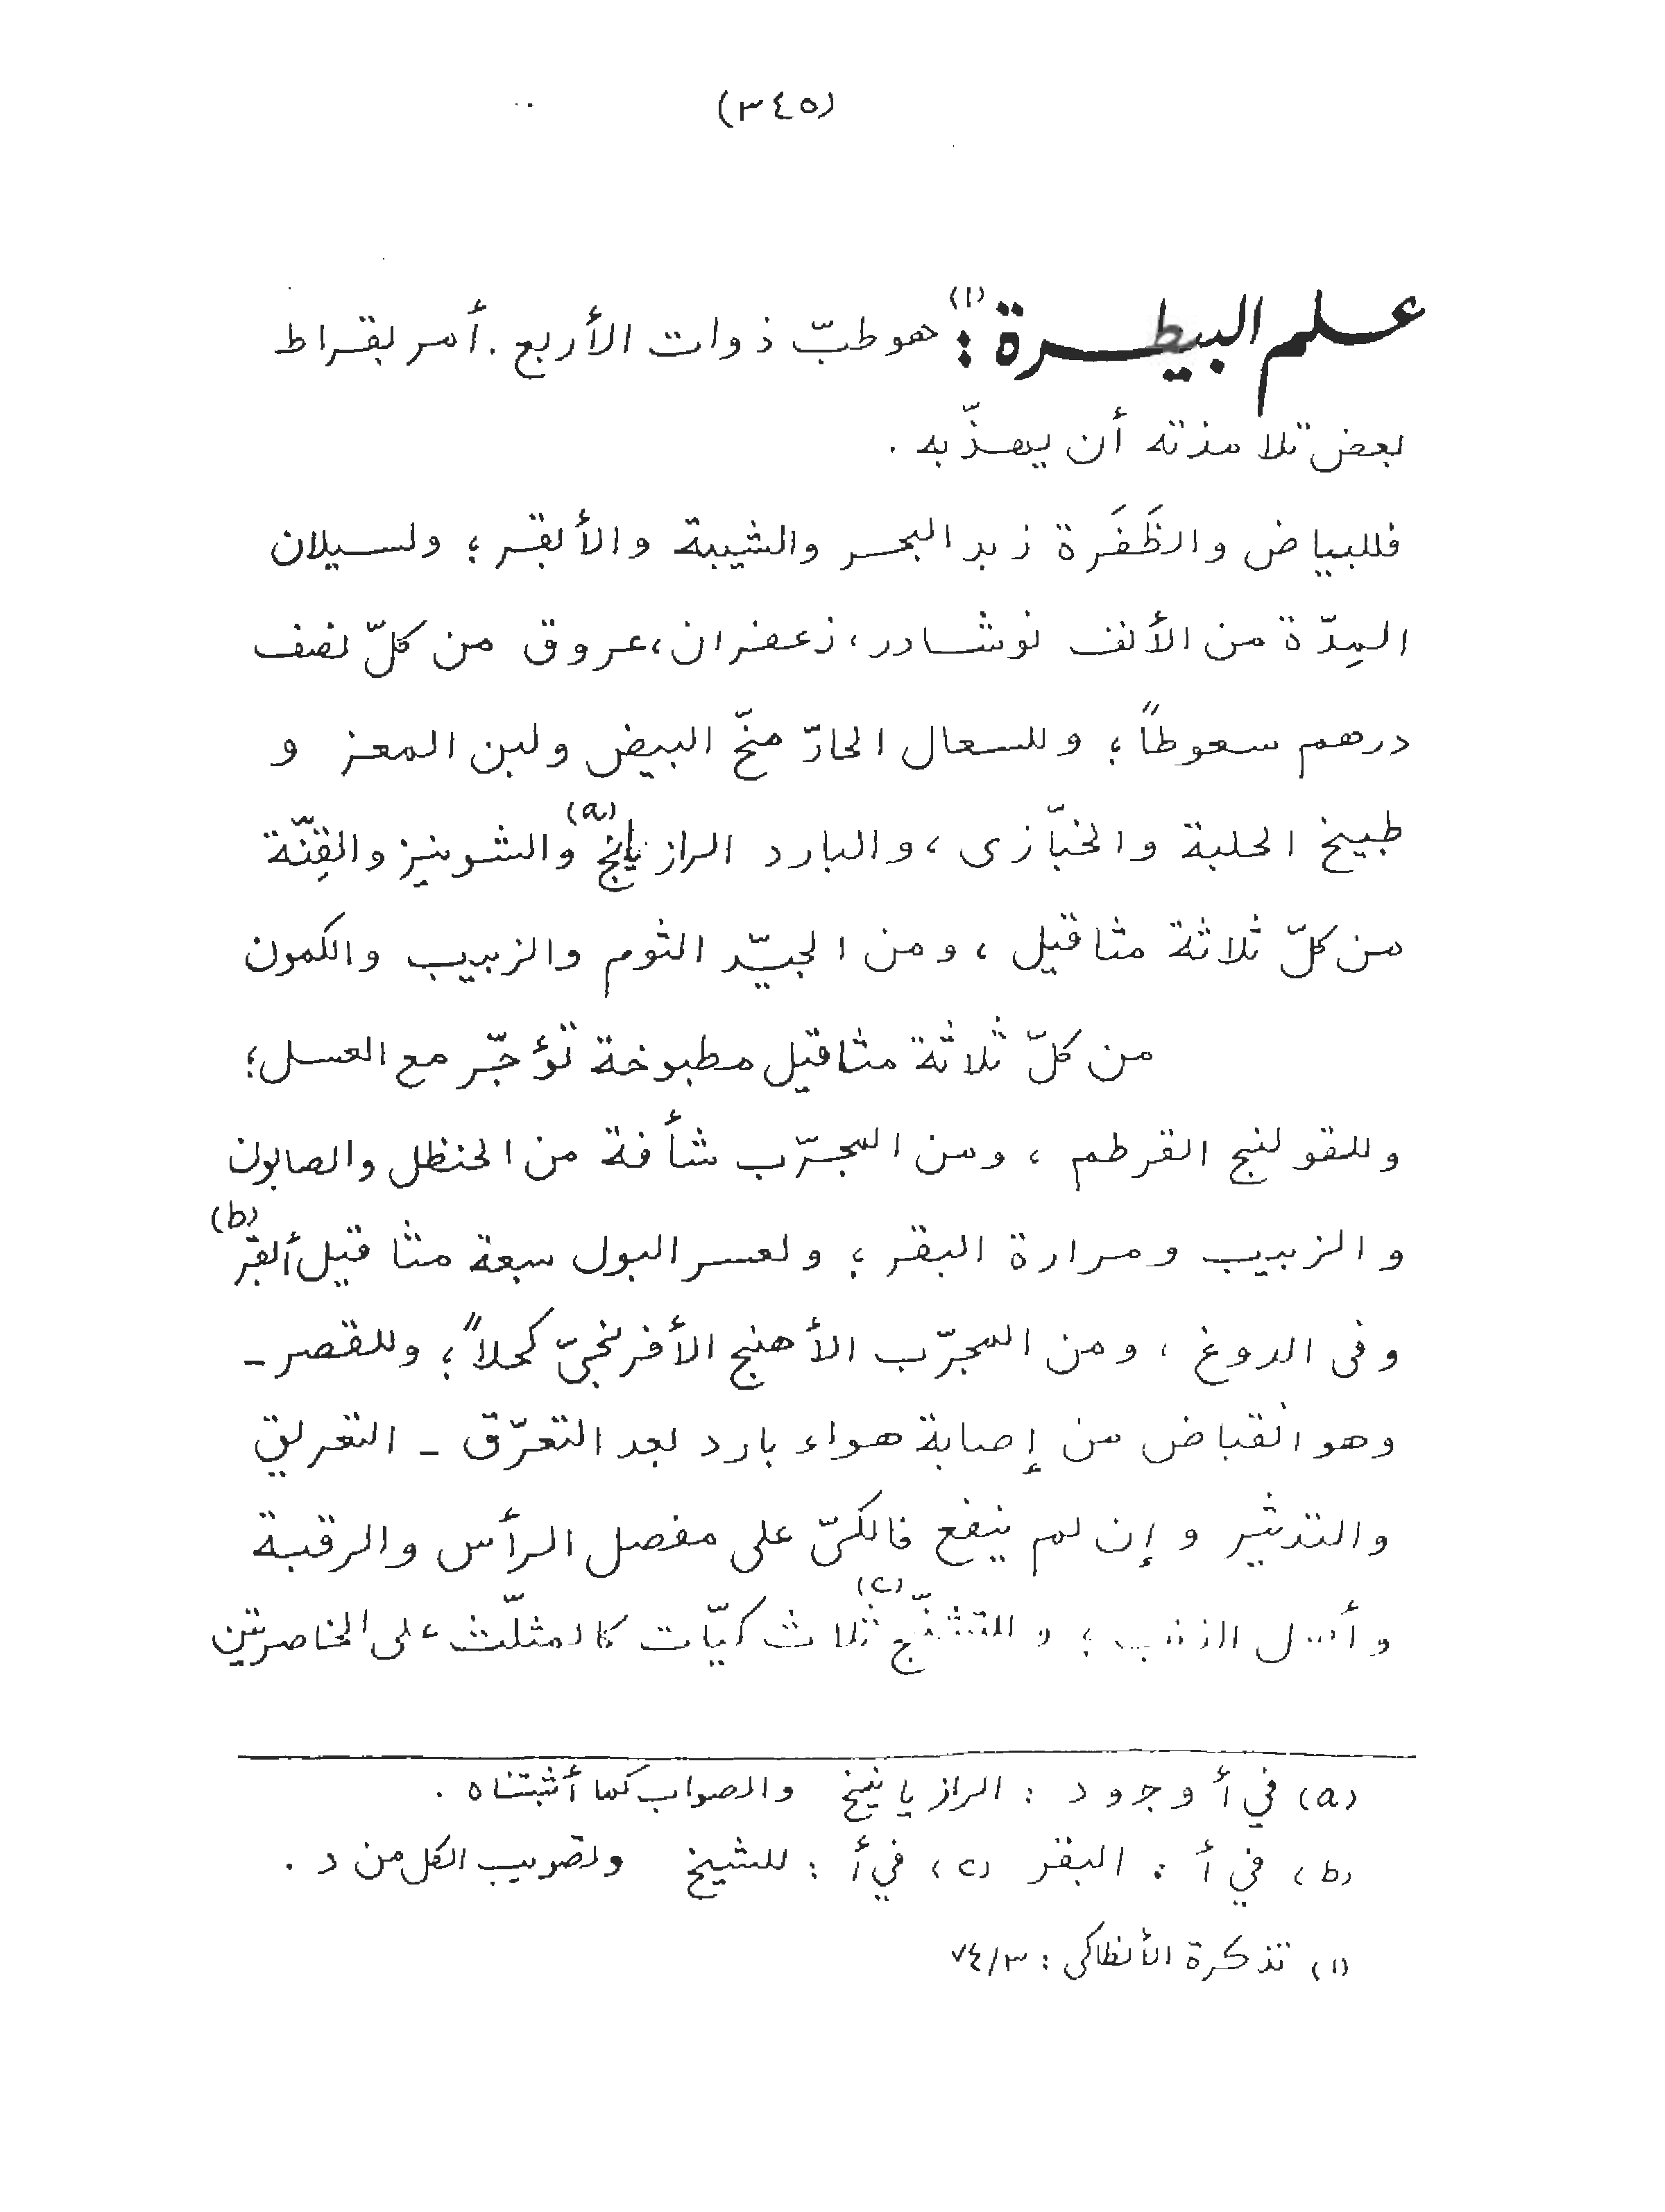 (٣٤٥)
علم البيطرة(١): هو طبّ ذوات الأربع . أمر بقراط
بعض تلامذته أن يهذّبه .
فللبياض والظَفَرة زبد البحر والشيبة والألبقر ؛ ولسيلان
المِدّة من الأنف نوشادر ، زعفران ، عروق من كلّ نصف
درهم سعوطاً ؛ وللسعال الحارّ مخّ البيض ولبن المعز و
طبيخ الحلبة والخبّازى ، والبارد الرازيانج(a) والشونيز والقِنّة
من كلّ ثلاثة مثاقيل ، ومن الجيّد الثوم والزبيب والكمون
من كلّ ثلاثة مثاقيل مطبوخة تؤجّر مع العسل ؛
وللقولنج القرطم ، ومن المجرّب شأفة من الحنظل والصابون
والزبيب ومرارة البقر ؛ ولعسر البول سبعة مثاقيل ألبقر(b)
وفى الدوغ ، ومن المجرّب الأهنج الأفرنجىّ كحلاً ؛ وللقصر -
وهو انقباض من إصابة هواء بارد بعد التعرّق - التعريق
والتدثير وإن لم ينفع فالكىّ على مفصل الرأس والرقبة
وأصل الذنب ؛ وللتشنّج(c) ثلاث كيّات كالمثلّث على الخاصرتين
(a) في أ وج ود : الرازيانيخ والصواب كما أثبتناه .
(b) في أ : البقر (c) في أ : للشيخ وتصويب الكل من د .
(١) تذكرة الأنطاكى : ٧٤/٣